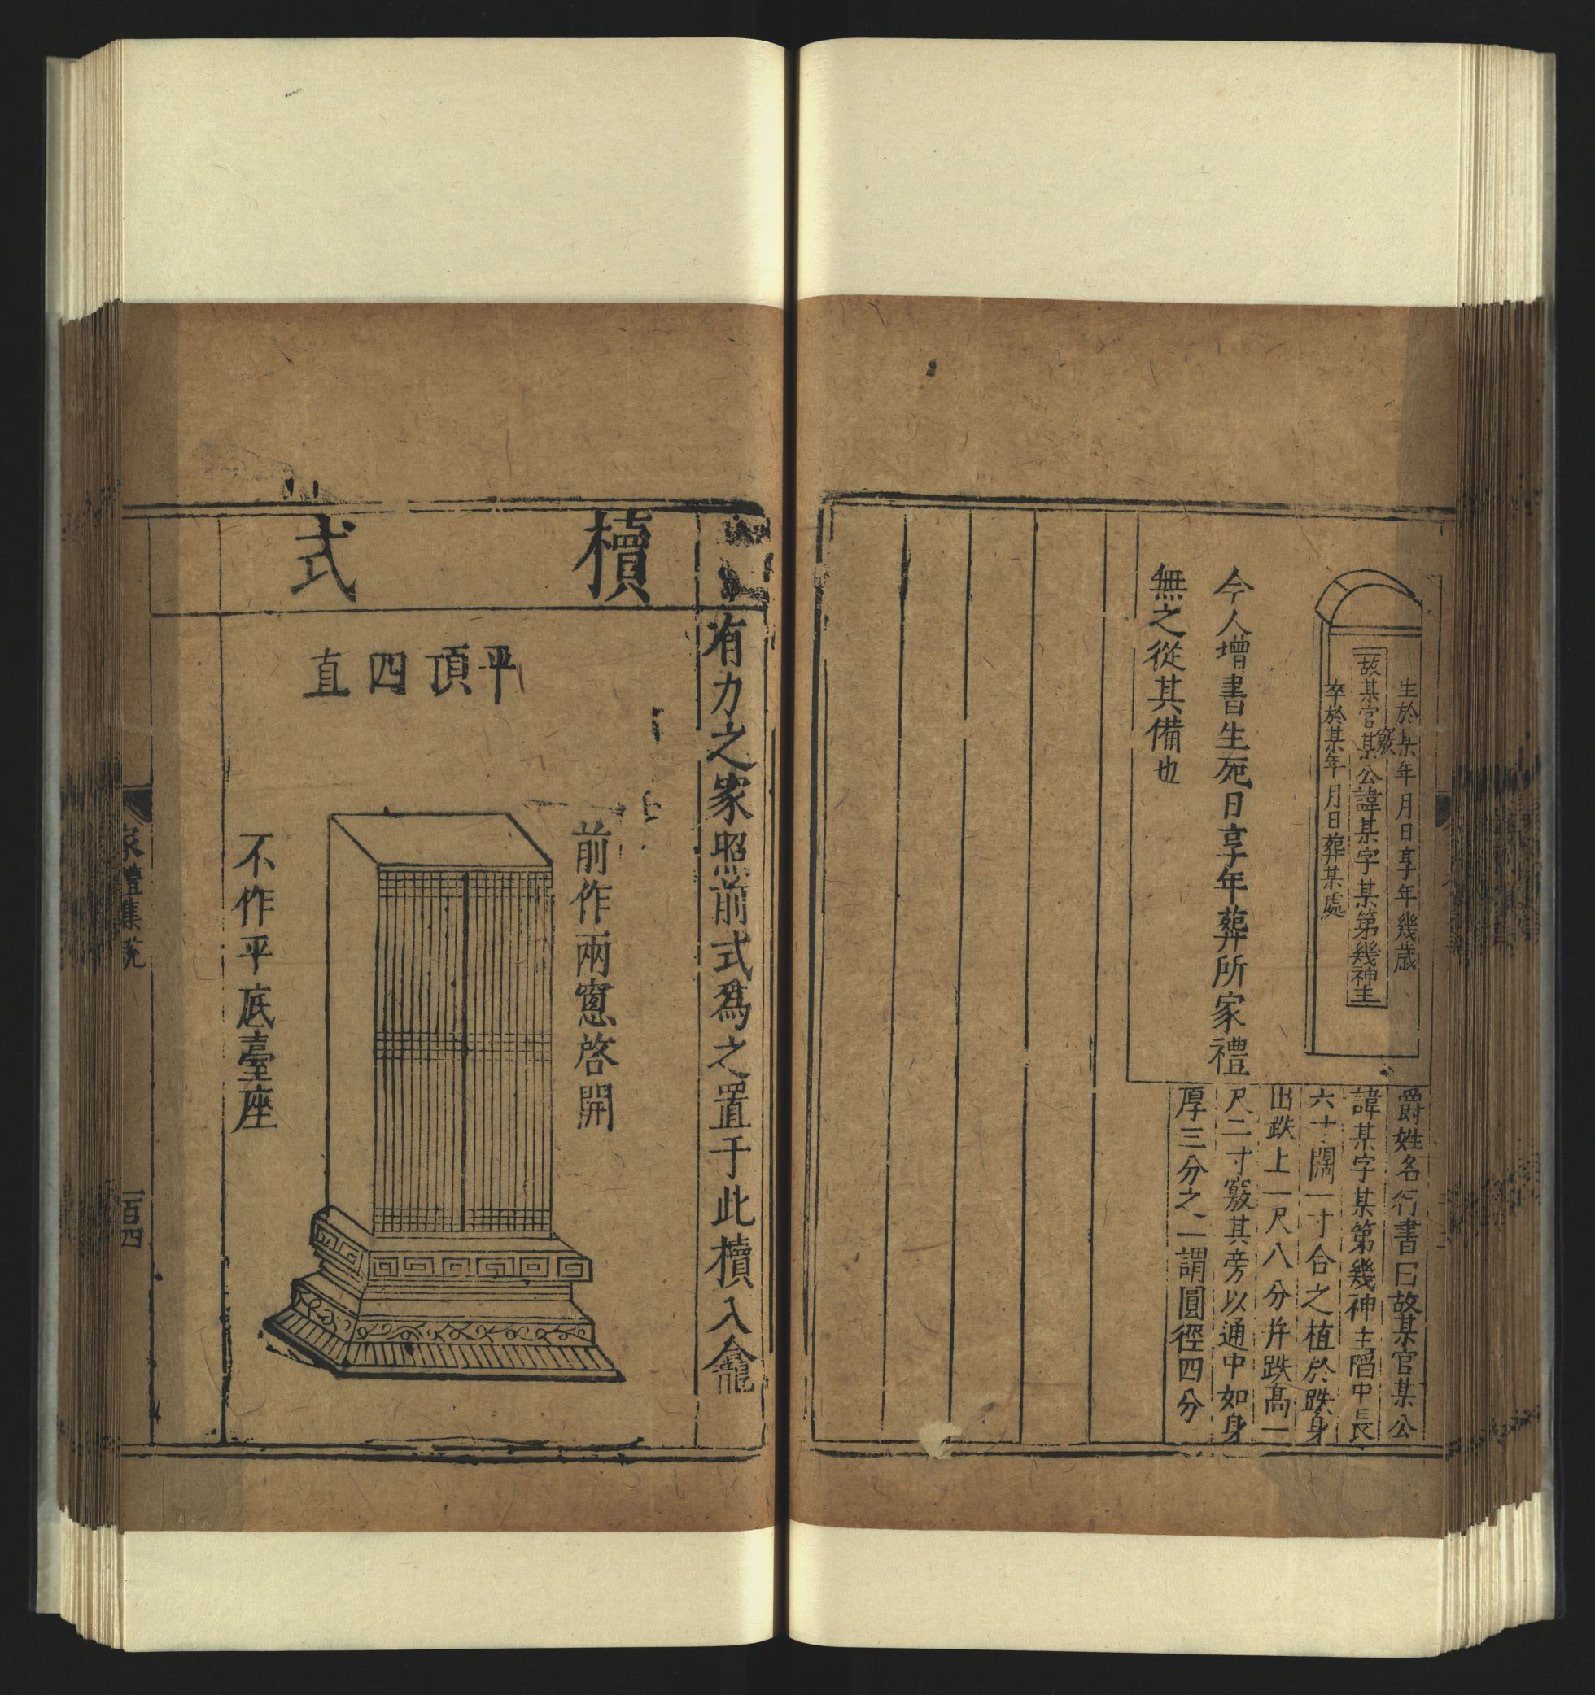 生於某年月日享年幾歲
竅
故某官某公諱某字某第幾神主
卒於某年月日葬某處
今人增書生死日享年葬所家禮
無之從其備也
爵姓名行書曰故某官某公
諱某字某第幾神主陷中長
六寸闊一寸合之植於趺身
出趺上一尺八分并趺高一
尺二寸竅其旁以通中如身
厚三分之一謂圓徑四分
有力之家照前式為之置于此櫝入龕
櫝式
平頂四直
前作兩窻啓開
不作平底臺座
家禮集說
一百四